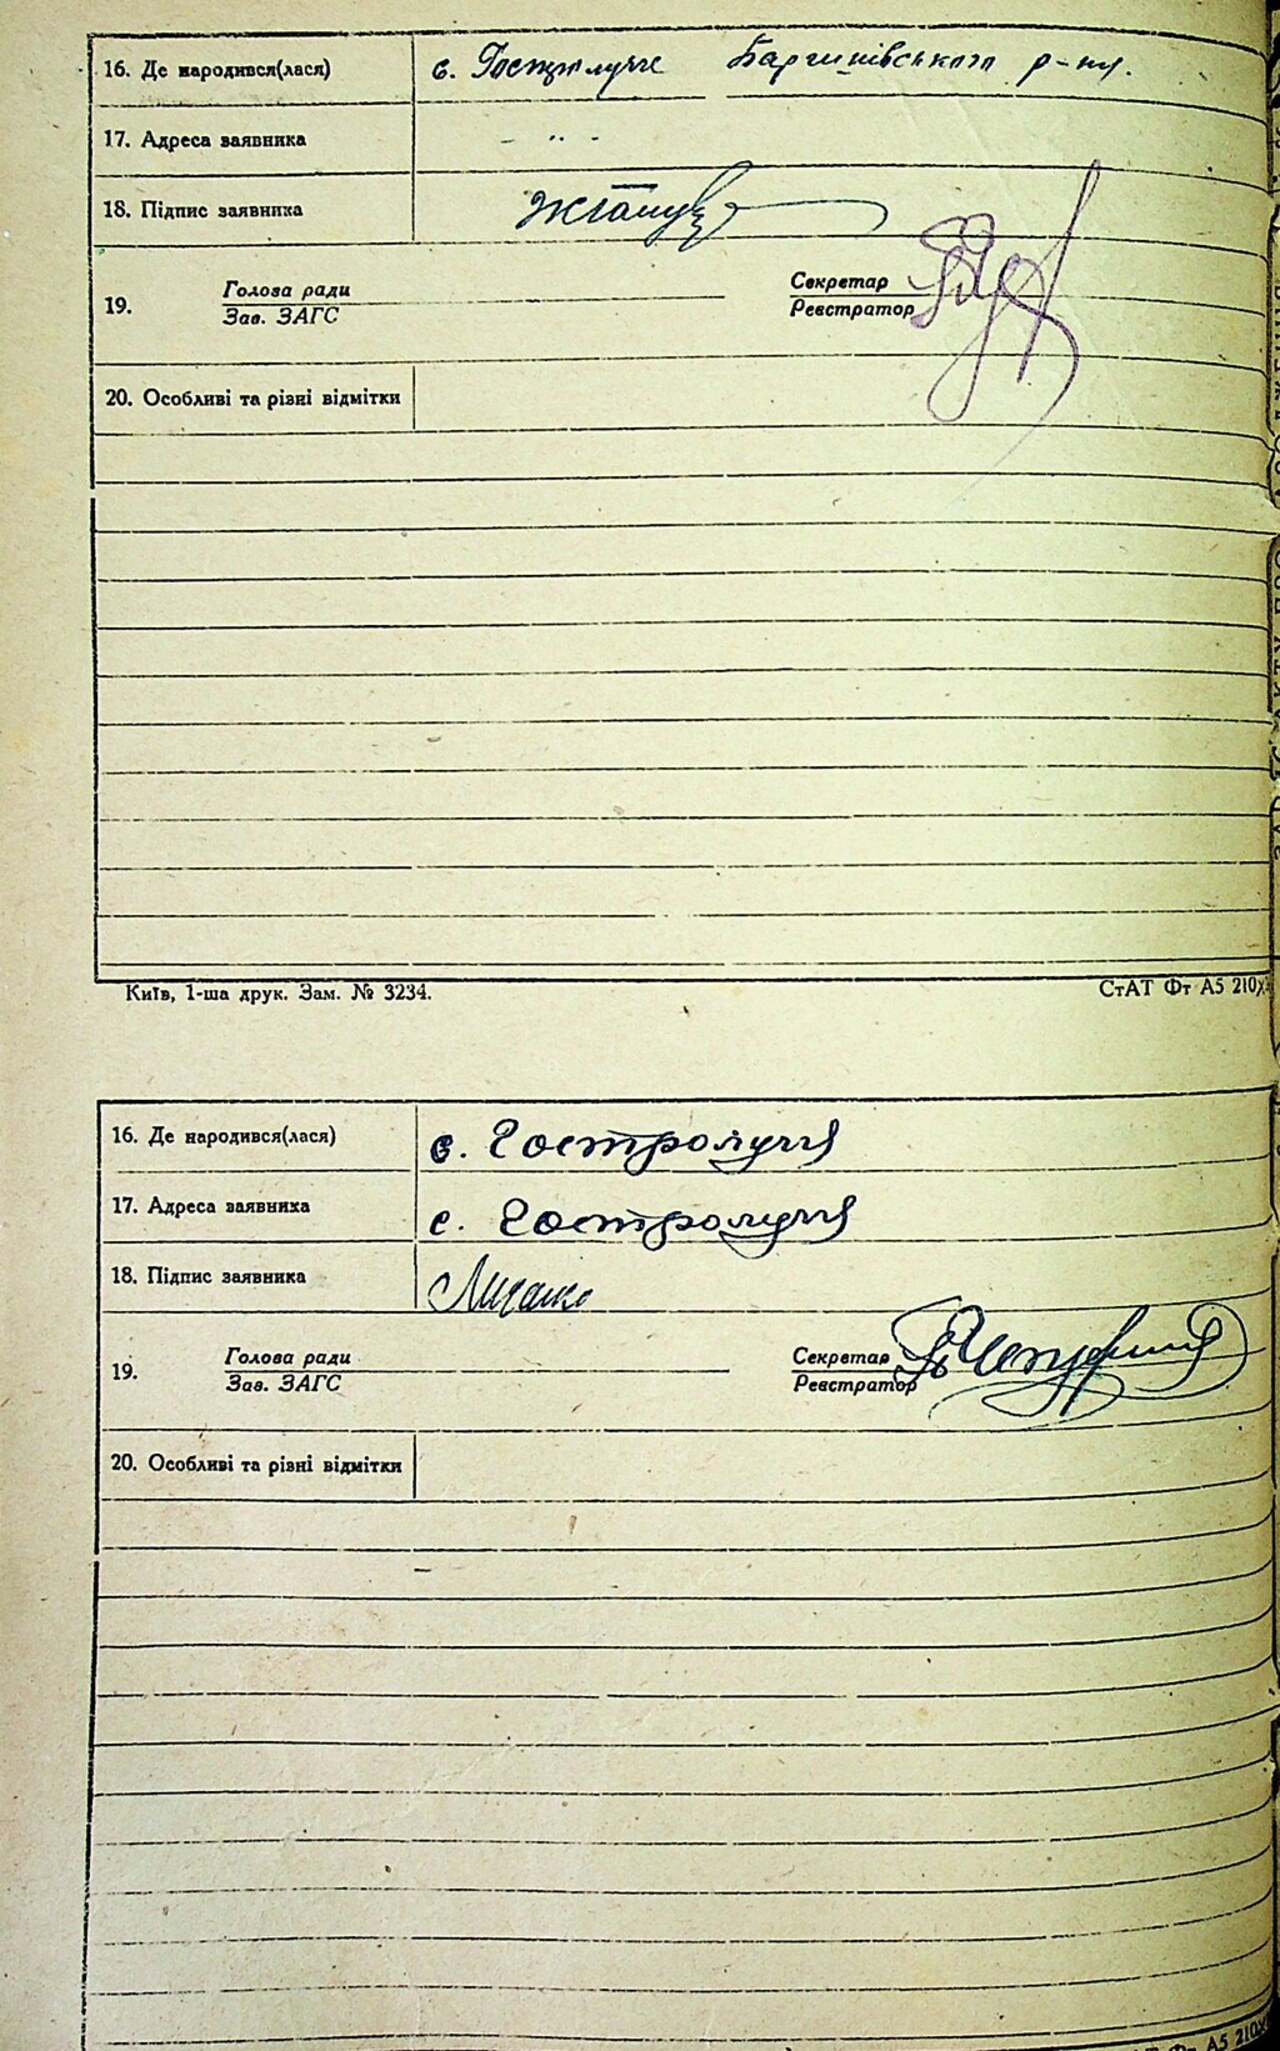 16. Де народився(лася) с. Гостролуччє Баришівського р-ну.
17. Адреса заявника - " -
18. Підпис заявника
19. Голова ради Секретар
Зав. ЗАГС Реєстратор
20. Особливі та різні відмітки
Київ, 1-ша друк. Зам. № 3234. СтАТ Фт А5 210×
16. Де народився(лася) с. Гостролуччя
17. Адреса заявника с. Гостролуччя
18. Підпис заявника
19. Голова ради Секретар
Зав. ЗАГС Реєстратор
20. Особливі та різні відмітки
Фт А5 210×